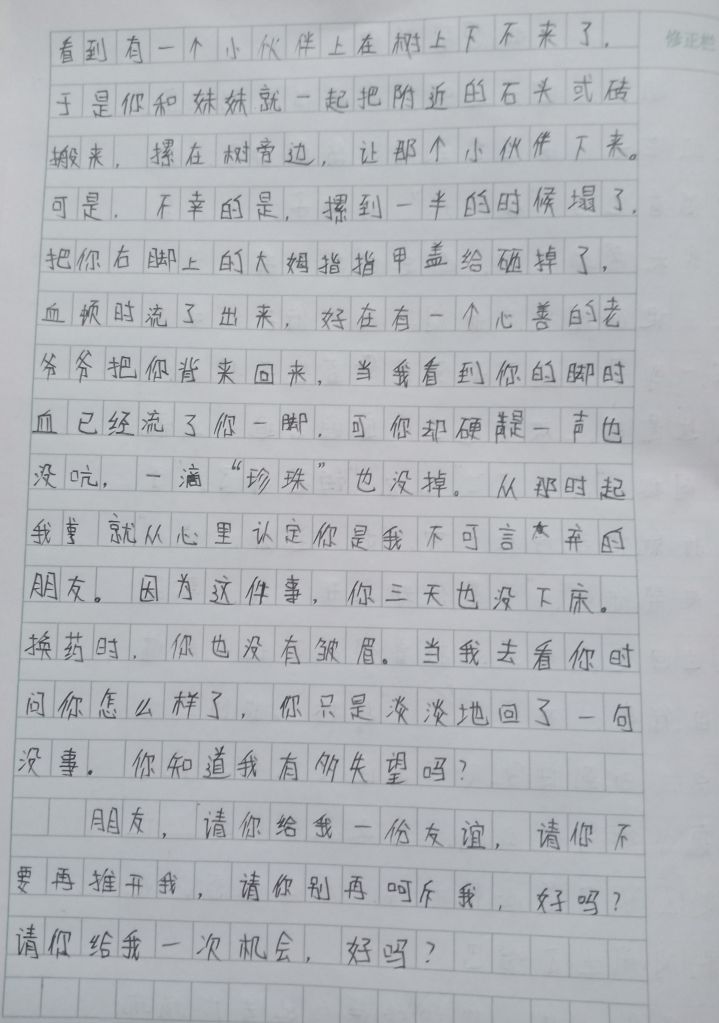 看到有一个小伙伴上在树上下不来了，
修正栏
于是你和妹妹就一起把附近的石头或砖
搬来，摞在树旁边，让那个小伙伴下来。
可是，不幸的是，摞到一半的时候塌了，
把你右脚上的大姆指指甲盖给砸掉了，
血顿时流了出来，好在有一个心善的老
爷爷把你背来回来，当我看到你的脚时
血已经流了你一脚，可你却硬是一声也
没吭，一滴“珍珠”也没掉。从那时起
我 就从心里认定你是我不可言弃的
朋友。因为这件事，你三天也没下床。
换药时，你也没有皱眉。当我去看你时
问你怎么样了，你只是淡淡地回了一句
没事。你知道我有多失望吗？
朋友，请你给我一份友谊，请你不
要再推开我，请你别再呵斥我，好吗？
请你给我一次机会，好吗？